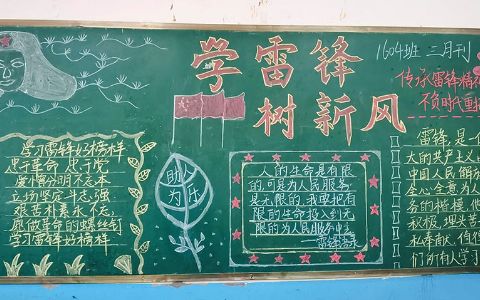 学雷锋
树新风
1604班 三月刊
传承雷锋精
不负时代重
学习雷锋好榜样
忠于革命 忠于党
爱憎分明不忘本
立场坚定斗志强
艰苦朴素永不忘
愿做革命的螺丝钉
学习雷锋好榜样
助人
为乐
人的生命是有限
的,可是为人民服务
是无限的,我要把有
限的生命投入到无
限的为人民服务中去
——雷锋
雷锋是一
大的共产主义
中国人民解放
全心全意为人
务的楷模,他
积极,埋头苦
私奉献,
们所有人学习